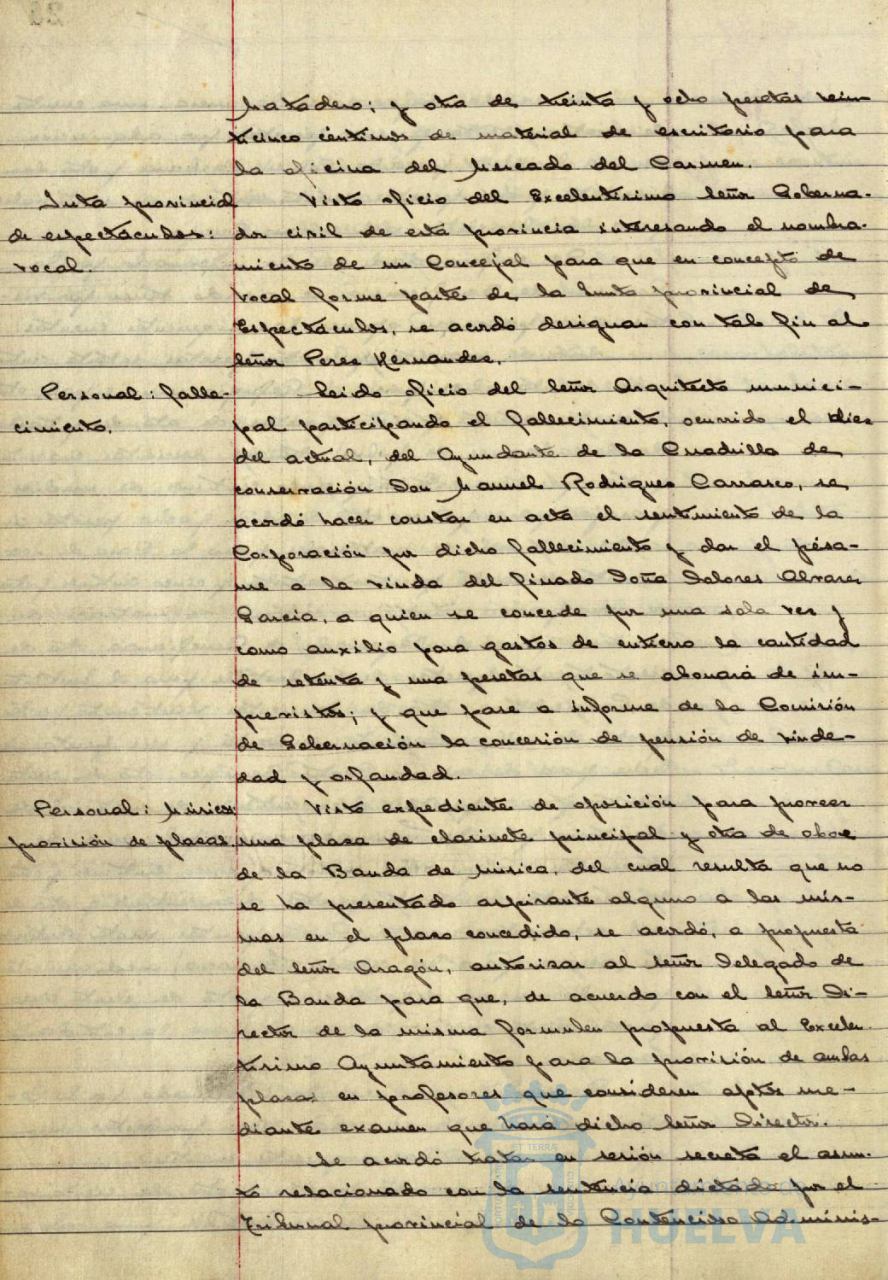 Matadero; y otra de treinta y ocho pesetas vein-
ticinco céntimos de material de escritorio para
la oficina del Mercado del Carmen.
Junta provincial
de espectáculos:
vocal.
Visto oficio del Excelentísimo Señor Goberna-
dor civil de esta provincia interesando el nombra-
miento de un Concejal para que en concepto de
vocal forme parte de la Junta provincial de
Espectáculos, se acordó designar con tal fin al
Señor Perez Hernandez.
Personal: falle-
cimiento.
Leido oficio del Señor Arquitecto munici-
pal participando el fallecimiento, ocurrido el diez
del actual, del Ayudante de la Cuadrilla de
conservación Don Manuel Rodriguez Carrasco, se
acordó hacer constar en acta el sentimiento de la
Corporación por dicho fallecimiento y dar el pésa-
me a la viuda del finado Doña Dolores Alvarez
Garcia, a quien se concede por una sola vez y
como auxilio para gastos de entierro la cantidad
de setenta y una pesetas que se abonará de im-
previstos; y que pase a informe de la Comisión
de Gobernación la concesión de pensión de viude-
dad y orfandad.
Personal: Músicos:
provisión de plazas.
Visto expediente de oposición para proveer
una plaza de clarinete principal y otra de oboe
de la Banda de música, del cual resulta que no
se ha presentado aspirante alguno a las mis-
mas en el plazo concedido, se acordó, a propuesta
del Señor Aragón, autorizar al Señor Delegado de
la Banda para que, de acuerdo con el Señor Di-
rector de la misma formulen propuesta al Excelen-
tisimo Ayuntamiento para la provisión de ambas
plazas en profesores que consideren aptos me-
diante examen que hará dicho Señor Director.
Se acordó tratar en sesión secreta el asun-
to relacionado con la sentencia dictada por el
Tribunal provincial de lo Contencioso Adminis-
HUELVA